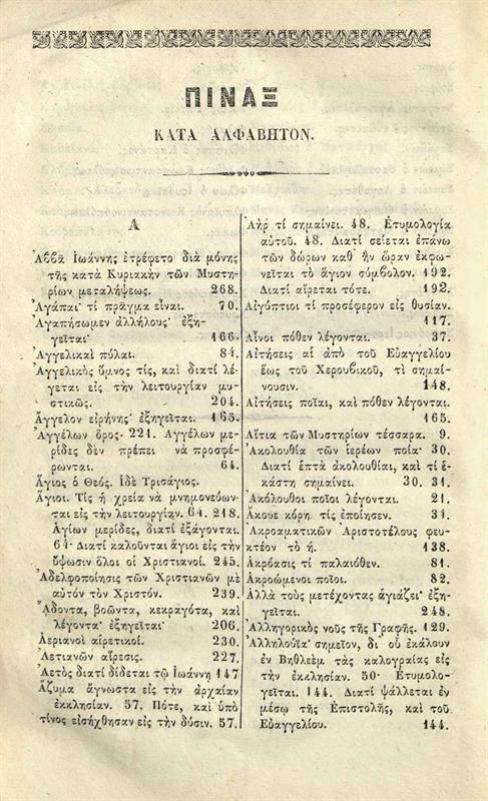 ΠΙΝΑΞ
ΚΑΤΑ ΑΛΦΑΒΗΤΟΝ.
Α
Ἀββᾶ Ἰωάννης ἐτρέφετο διὰ μόνης
τῆς κατὰ Κυριακὴν τῶν Μυστη-
ρίων μεταλήψεως. 268.
Ἀγάπαι· τί πρᾶγμα εἶναι. 70.
Ἀγαπήσωμεν ἀλλήλους· ἐξη-
γεῖται· 166.
Ἀγγελικαὶ πύλαι. 84.
Ἀγγελικὸς ὕμνος τίς, καὶ διατί λέ-
γεται εἰς τὴν λειτουργίαν μυ-
στικῶς. 204.
Ἄγγελον εἰρήνης· ἐξηγεῖται. 165.
Ἀγγέλων ὄρος. 221. Ἀγγέλων με-
ρίδες δὲν πρέπει νὰ προσφέ-
ρωνται. 64.
Ἅγιος ὁ Θεός. Ἰδὲ Τρισάγιος.
Ἅγιοι. Τίς ἡ χρεία νὰ μνημονεύων-
ται εἰς τὴν λειτουργίαν. 64. 218.
Ἁγίων μερίδες, διατί ἐξάγονται.
64· Διατί καλοῦνται ἅγιοι εἰς τὴν
ὕψωσιν ὅλοι οἱ Χριστιανοί. 245.
Ἀδελφοποίησις τῶν Χριστιανῶν μὲ
αὐτὸν τὸν Χριστόν. 239.
ᾌδοντα, βοῶντα, κεκραγότα, καὶ
λέγοντα· ἐξηγεῖται· 206.
Ἀεριανοὶ αἱρετικοί. 230.
Ἀετιανῶν αἵρεσις. 227.
Ἀετὸς διατί δίδεται τῷ Ἰωάννῃ 147
Ἄζυμα ἄγνωστα εἰς τὴν ἀρχαίαν
ἐκκλησίαν. 57. Πότε, καὶ ὑπὸ
τίνος εἰσήχθησαν εἰς τὴν δύσιν. 57.
Ἀὴρ τί σημαίνει. 48. Ἐτυμολογία
αὐτοῦ. 48. Διατί σείεται ἐπάνω
τῶν δώρων καθ' ἣν ὥραν ἐκφω-
νεῖται τὸ ἅγιον σύμβολον. 192.
Διατί αἴρεται τότε. 192.
Αἰγύπτιοι τί προσέφερον εἰς θυσίαν.
117.
Αἶνοι πόθεν λέγονται. 37.
Αἰτήσεις αἱ ἀπὸ τοῦ Εὐαγγελίου
ἕως τοῦ Χερουβικοῦ, τί σημαί-
νουσιν. 148.
Αἰτήσεις ποῖαι, καὶ πόθεν λέγονται.
165.
Αἴτια τῶν Μυστηρίων τέσσαρα. 9.
Ἀκολουθία τῶν ἱερέων ποία· 30.
Διατί ἑπτὰ ἀκολουθίαι, καὶ τί ἑ-
κάστη σημαίνει. 30. 31.
Ἀκόλουθοι ποῖοι λέγονται. 21.
Ἄκουε κόρη τίς ἐποίησεν. 34.
Ἀκροαματικῶν Ἀριστοτέλους φευ-
κτέον τὸ ἢ. 138.
Ἀκρόασις τί παλαιόθεν. 81.
Ἀκροώμενοι ποῖοι. 82.
Ἀλλὰ τοὺς μετέχοντας ἁγιάζει· ἐξη-
γεῖται. 248.
Ἀλληγορικὸς νοῦς τῆς Γραφῆς. 129.
Ἀλληλούϊα· σημεῖον, δι' οὗ ἐκάλουν
ἐν Βηθλεὲμ τὰς καλογραίας εἰς
τὴν ἐκκλησίαν. 50· Ἐτυμολο-
γεῖται. 144. Διατί ψάλλεται ἐν
μέσῳ τῆς Ἐπιστολῆς, καὶ τοῦ
Εὐαγγελίου. 144.